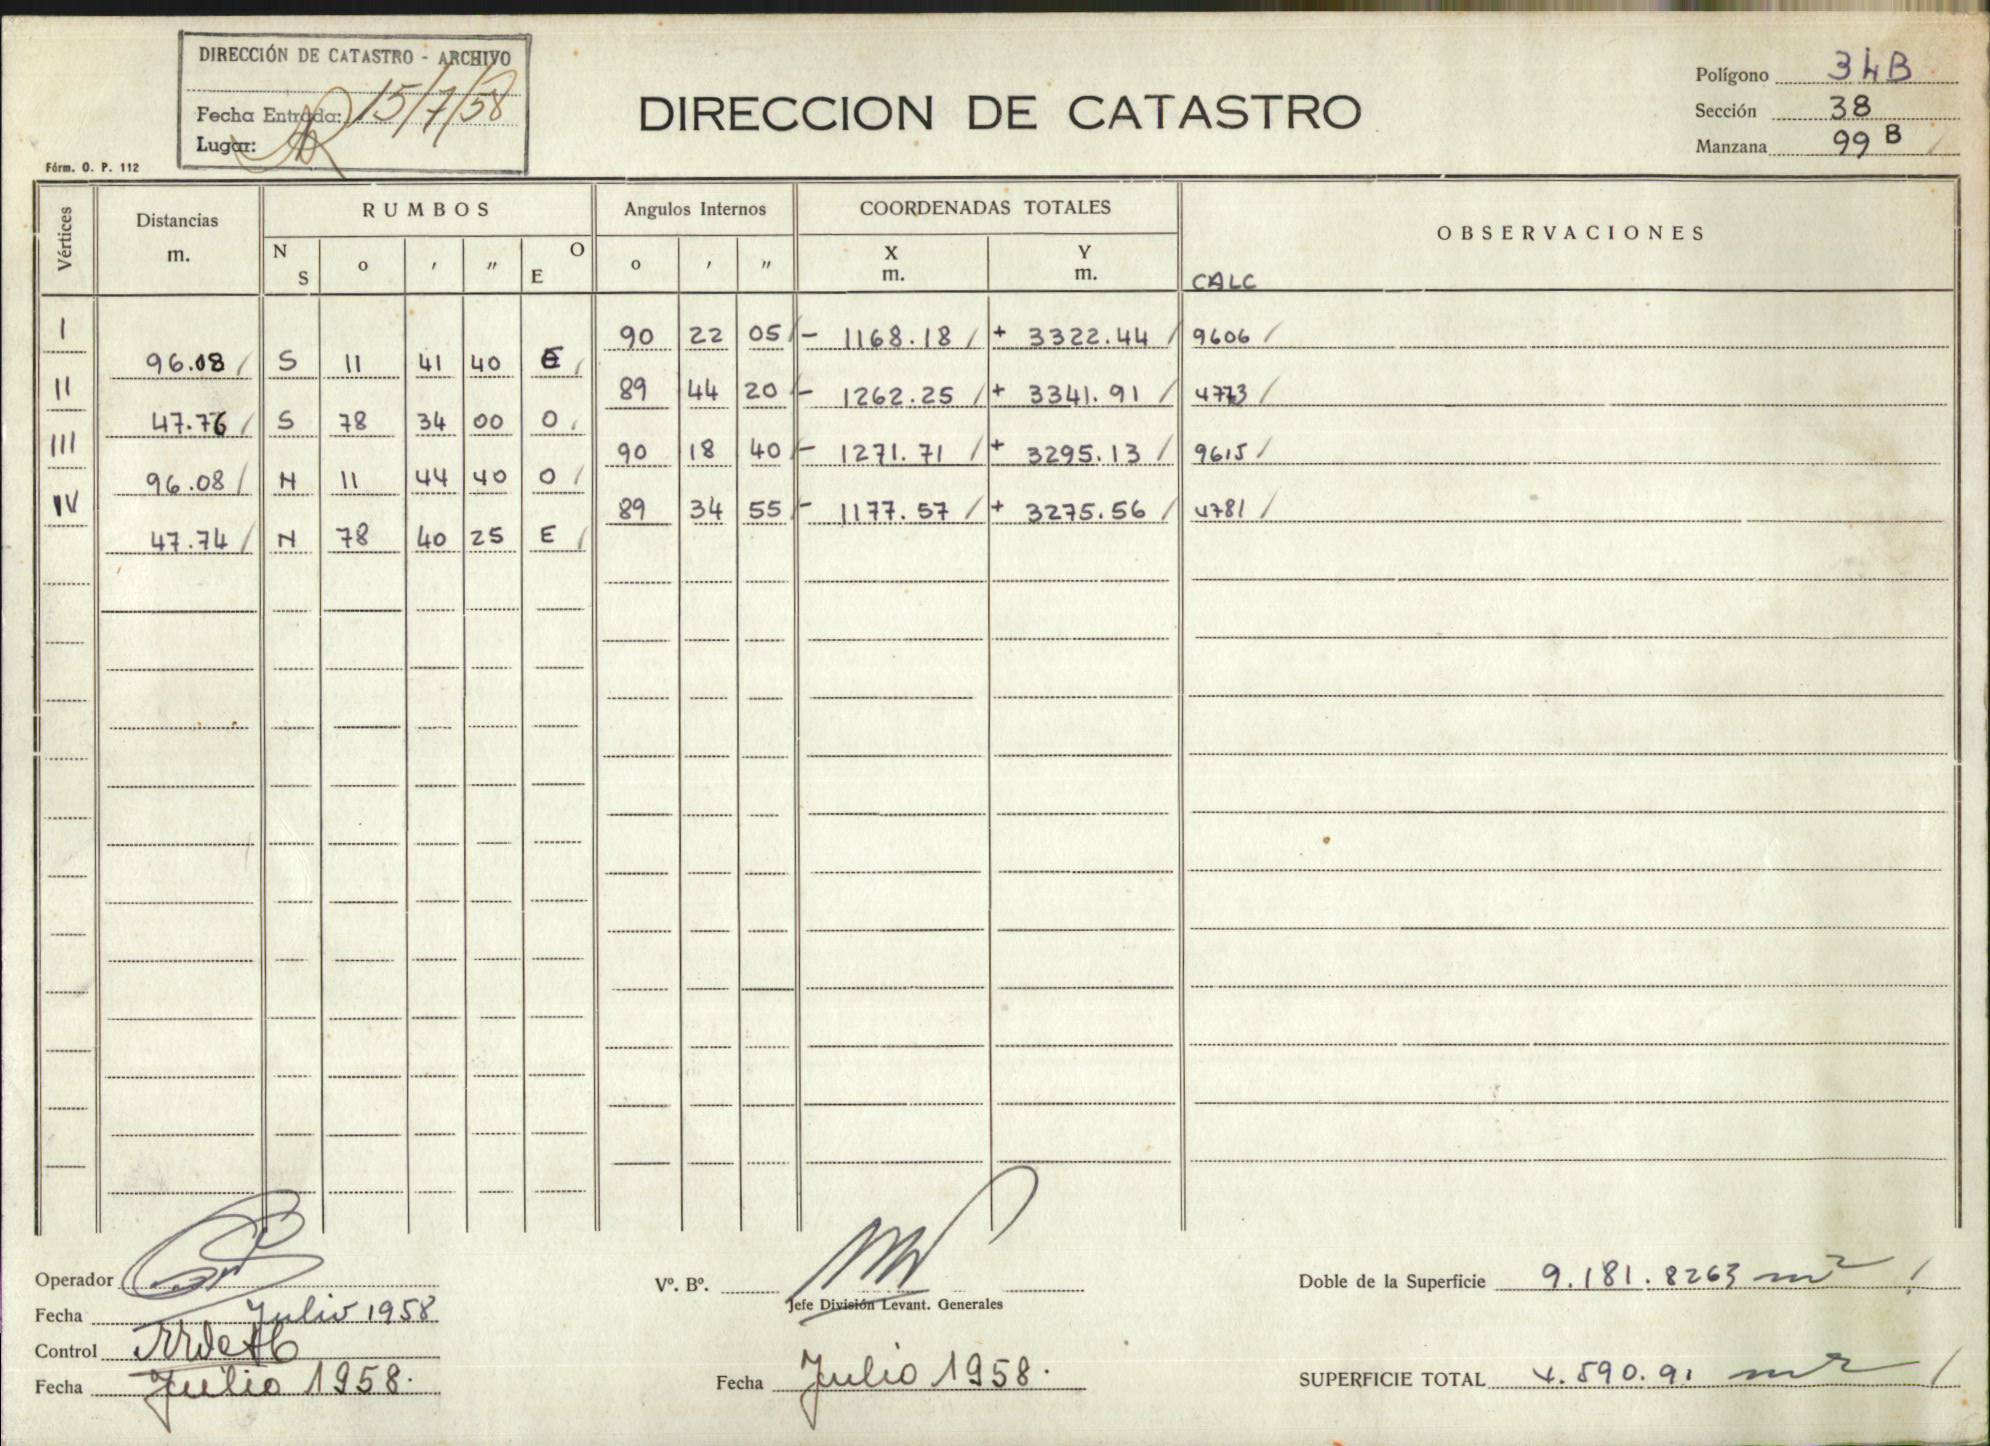 DIRECCIÓN DE CATASTRO - ARCHIVO
Fecha Entrada: 15/7/58
Lugar:
Fórm. O. P. 112
DIRECCION DE CATASTRO
Polígono 34B
Sección 38
Manzana 99 B /
Vértices Distancias m. RUMBOS Angulos Internos COORDENADAS TOTALES OBSERVACIONES
N S o ′ ″ O E o ′ ″ X m. Y m. CALC
I 90 22 05 / - 1168.18 / + 3322.44 / 9606 /
96.08 / S 11 41 40 E /
II 89 44 20 / - 1262.25 / + 3341.91 / 4773 /
47.76 / S 78 34 00 O /
III 90 18 40 / - 1271.71 / + 3295.13 / 9615 /
96.08 / N 11 44 40 O /
IV 89 34 55 / - 1177.57 / + 3275.56 / 4781 /
47.74 / N 78 40 25 E /
Operador
Fecha Julio 1958
Control
Fecha Julio 1958.
Vº. Bº.
Jefe División Levant. Generales
Fecha Julio 1958.
Doble de la Superficie 9.181.8263 m² /
SUPERFICIE TOTAL 4.590.91 m² /